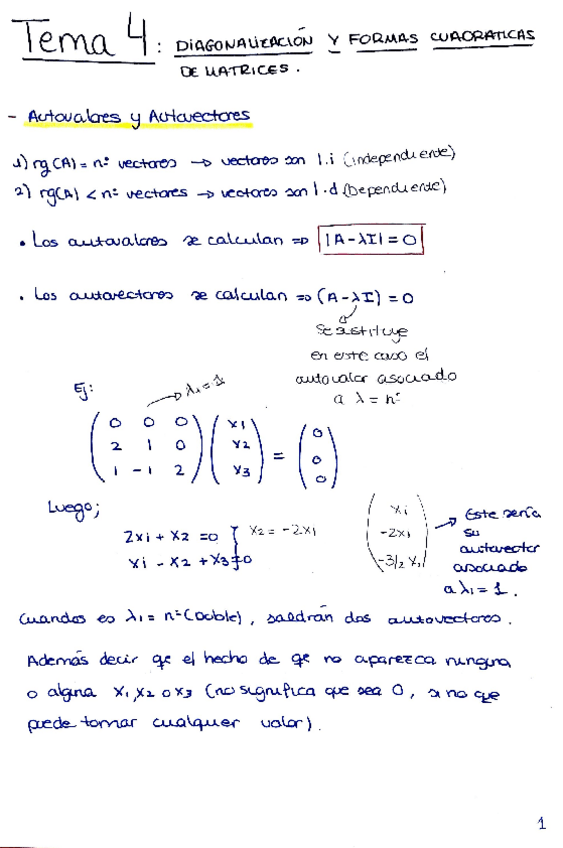 Tema 4: DIAGONALIZACIÓN Y FORMAS CUADRATICAS
DE MATRICES.
- Autovalores y Autovectores
1) rg(A) = nº vectores → vectores son l.i (independiente)
2) rg(A) < nº vectores → vectores son l.d (Dependiente)
• Los autovalores se calculan ⇒ |A-λI| = 0
• Los autovectores se calculan ⇒ (A-λI) = 0
Se sustituye
en este caso el
autovalor asociado
a λ = nº
Ej:
→ λ₁ = 1
(0 0 0) (x1) (0)
(2 1 0) (x2) = (0)
(1 -1 2) (x3) (0)
Luego;
2x1 + x2 = 0 } x2 = -2x1
x1 - x2 + x3 = 0
(x1)
(-2x1)
(-3/2 x1)
→ Este sería
su
autovector
asociado
a λ₁ = 1.
Cuando es λ₁ = nº (Doble), saldrán dos autovectores.
Además decir qe el hecho de qe no aparezca ninguna
o alguna x1, x2 o x3 (no significa que sea 0, si no que
puede tomar cualquier valor).
1